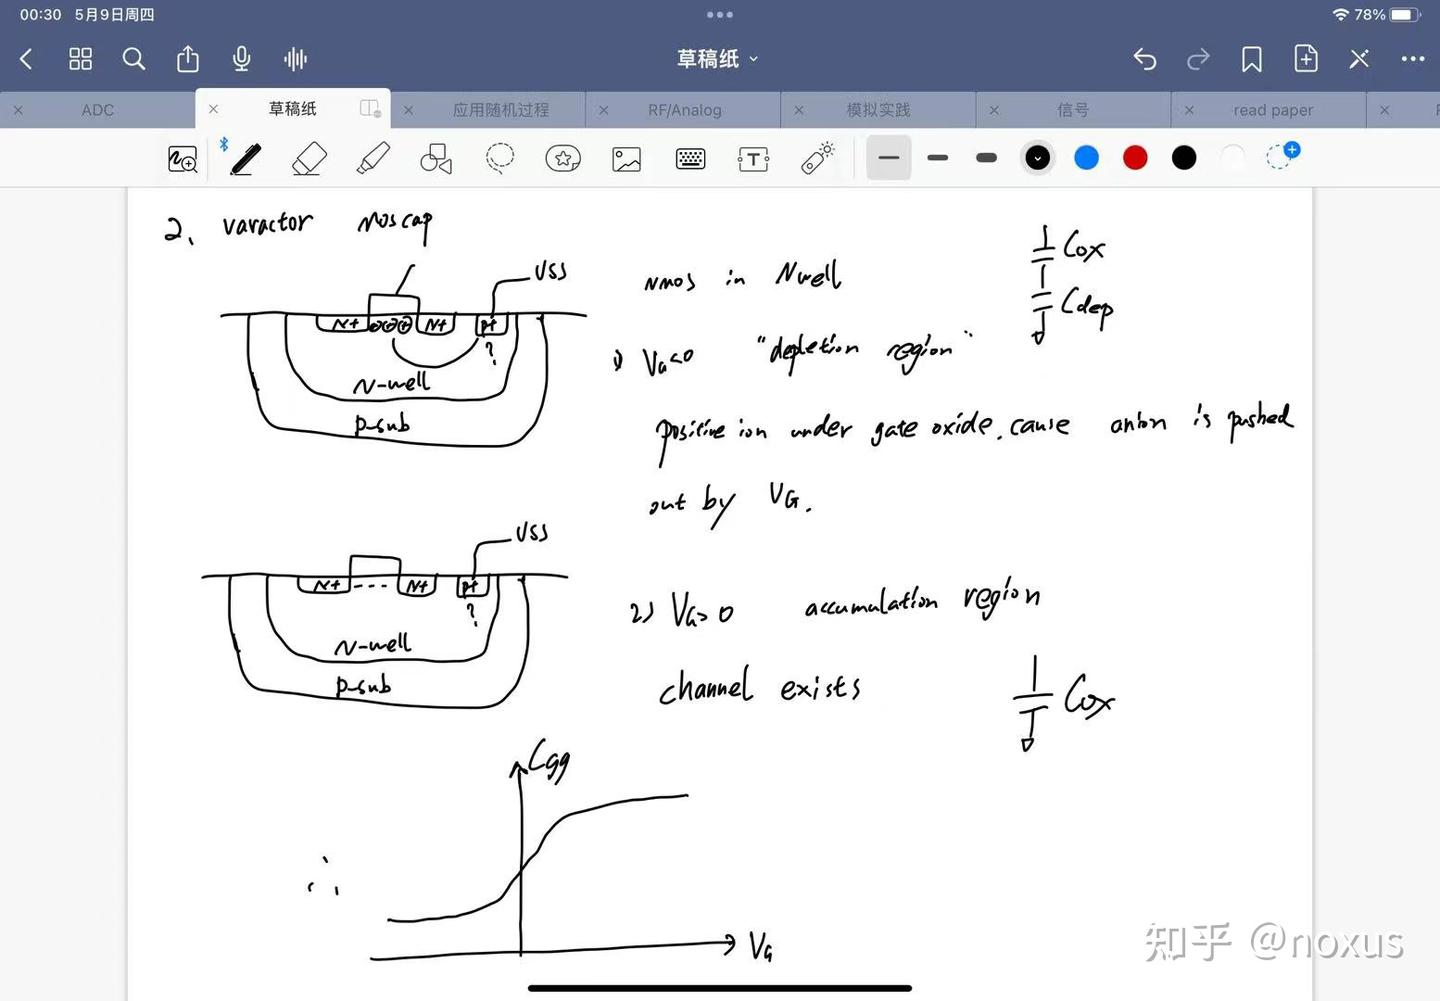 00:30 5月9日周四
78%
草稿纸
ADC
草稿纸
应用随机过程
RF/Analog
模拟实践
信号
read paper
2. varactor moscap
VSS
N+ N+ P+
?
N-well
P-sub
NMOS in Nwell
Cox
Cdep
1) VG<0 "depletion region"
positive ion under gate oxide. cause anion is pushed
out by VG.
VSS
N+ --- N+ P+
?
N-well
P-sub
2) VG>0 accumulation region
channel exists
Cox
Cgg
∴
VG
知乎 @noxus